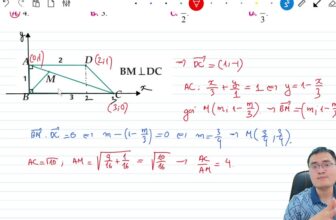 A. 4. B. 3. C. D.
y
A (0;1) 2 D (2;1)
M
1
B 3 2 C x
(3;0)
BM ⊥ DC
→ DC = (1;-1)
AC: x/3 + y/1 = 1 ⇔ y = 1 - x/3
gọi M(m; 1 - m/3) → BM = (m; 1 - m/3)
BM . DC = 0 ⇔ m - (1 - m/3) = 0 ⇔ m = 3/4 → M(3/4; 3/4)
AC = √10 , AM = √(9/16 + 1/16) = √(10/16) → AC/AM = 4